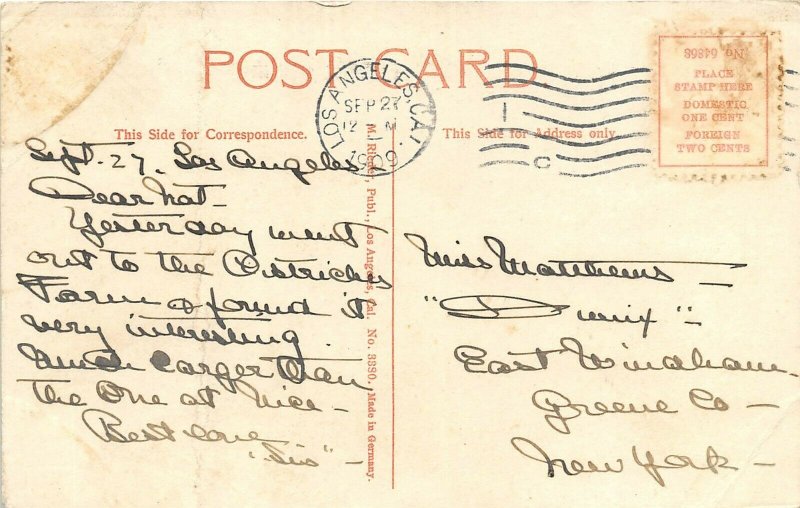 POST CARD
No. 64868
PLACE
STAMP HERE
DOMESTIC
ONE CENT
FOREIGN
TWO CENTS
LOS ANGELES, CAL.
SEP 27
12 M
1909
This Side for Correspondence.
This Side for Address only.
Sept. 27. Los Angeles
Dear Nat-
Yesterday went
out to the Ostriches
Farm & found it
very interesting
Much Larger than
the One at Nice-
Best love
"Sis"-
M. Rieder, Publ., Los Angeles, Cal. No. 3380. Made in Germany.
Miss Matthews-
East Windham.
Greene Co-
New York-